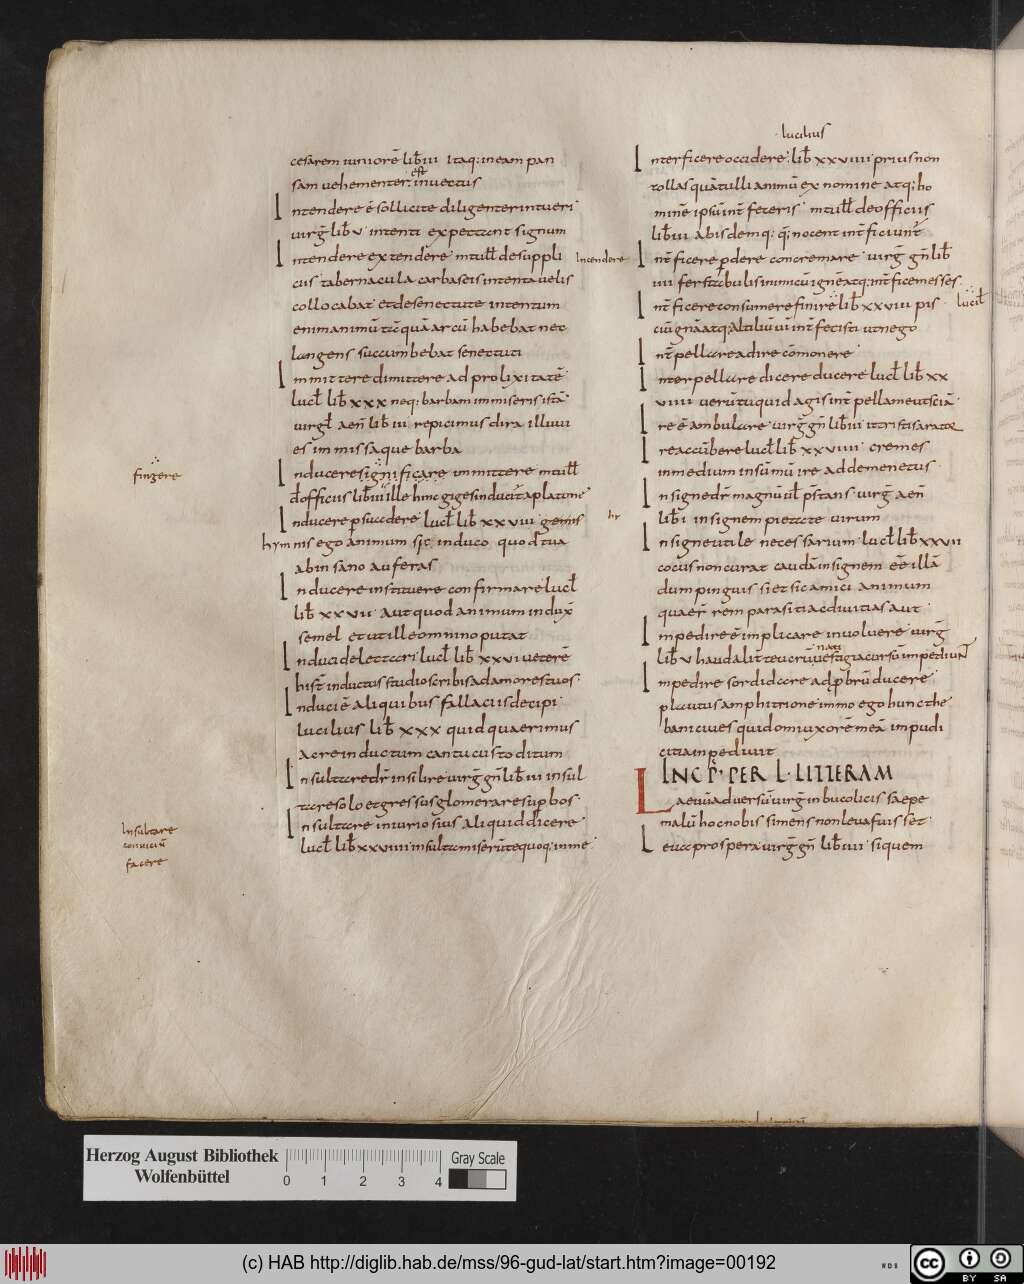 cesarem iuniorē lib̄ iii Itaq: in eam pan
sam uehementer est inuectus
Intendere ē sollicite diligenter intueri
uirḡ lib̄ v intenti expectant signum
Intendere extendere m tull̄ de suppli
cus tabernacula carbaseis intenta uelis
collocabat et de senectute intentum
enim animū tā quā arcū habebat nec
langens succumbebat senectuti
Inmittere dimittere ad prolixitatē
lucl̄ lib̄ xxx neq: barbam inmiseris istā
uirgl̄ aen̄ lib̄ iii repicimus dira illuui
es inmissaque barba
Inducere significare inmittere m tull̄
d officiis lib̄ iii ille hinc giges inducit a platone
Inducere p succedere lucl̄ lib̄ xxviii gemis
hymnis ego animum sic induco quod tua
ab insano auferas
Inducere instituere confirmare lucl̄
lib̄ xxvii aut quod animum indux̄
semel et ut ille omnino putat
Induci delectari lucl̄ lib̄ xxvi ueterē
hist̄ inductus studio scribis ad amores tuos
Induci ē aliquibus fallaciis decipi
lucilius lib̄ xxx quid quaerimus
acre inductum cantu custoditum
Insultare dr̄ insilire uirḡ gn̄ lib̄ iii insul
tare solo et gressus glomerare supbos
Insultare iniuriosius aliquid dicere
lucl̄ lib̄ xxviiii insulta miserū te quoq: in me
fingere
Insultare
conuiciū
facere
lucilius
Interficere occidere lib̄ xxviiii prius non
tollas quā tulli animū ex nomine atq: ho
mine ipsū int̄feceris m tull̄ de officiis
lib̄ iii ab isdemq: q: nocent int̄ficiunt̄
Int̄ficere p̄dere concremare uirḡ gn̄ lib̄
iiii fer stabulis inimicū ignē atq: int̄fice messes
Int̄ficere consumere finire lib̄ xxviii pis
ciū gnā atq: altiliū ui int̄fecisti ut nego
Int̄pellare adire cōmonere
Interpellare dicere ducere lucl̄ lib̄ xx
viiii uerū tu quid agis int̄pella me ut sciā
Ire ē ambulare uirḡ gn̄ lib̄ iii it tristis arator
Ire accūbere lucl̄ lib̄ xxviiii cremes
in medium in sūmū ire ad demenetus
Insigne dr̄ magnū ul̄ p̄stans uirḡ aen̄
lib̄ i insignem pietate uirum
Insigne utile necessarium lucl̄ lib̄ xxvii
cocus non curat caudā insignem ēē illā
dum pinguis siet sic amici animum
quaer̄ rem parasiti ac diuitias aut
Inpedire ē implicare inuoluere uirḡ
lib̄ v haud alit̄ teucrū nati uestigia cursū impediunt
Inpedire sordidare ad p̄brū ducere
plautus amphitrione immo ego hunc the
bani ciues qui domi uxorē meā impudi
citia inpediuit
INCP̄ PER L LITTERAM
Laeuū aduersū uirḡ in bucolicis saepe
malū hoc nobis si mens non leua fuisset
Leua prospera uirḡ gn̄ lib̄ iiii si quem
Incendere
lucil̄
Herzog August Bibliothek
Wolfenbüttel
0 1 2 3 4
Gray Scale
(c) HAB http://diglib.hab.de/mss/96-gud-lat/start.htm?image=00192
WDB
cc BY SA